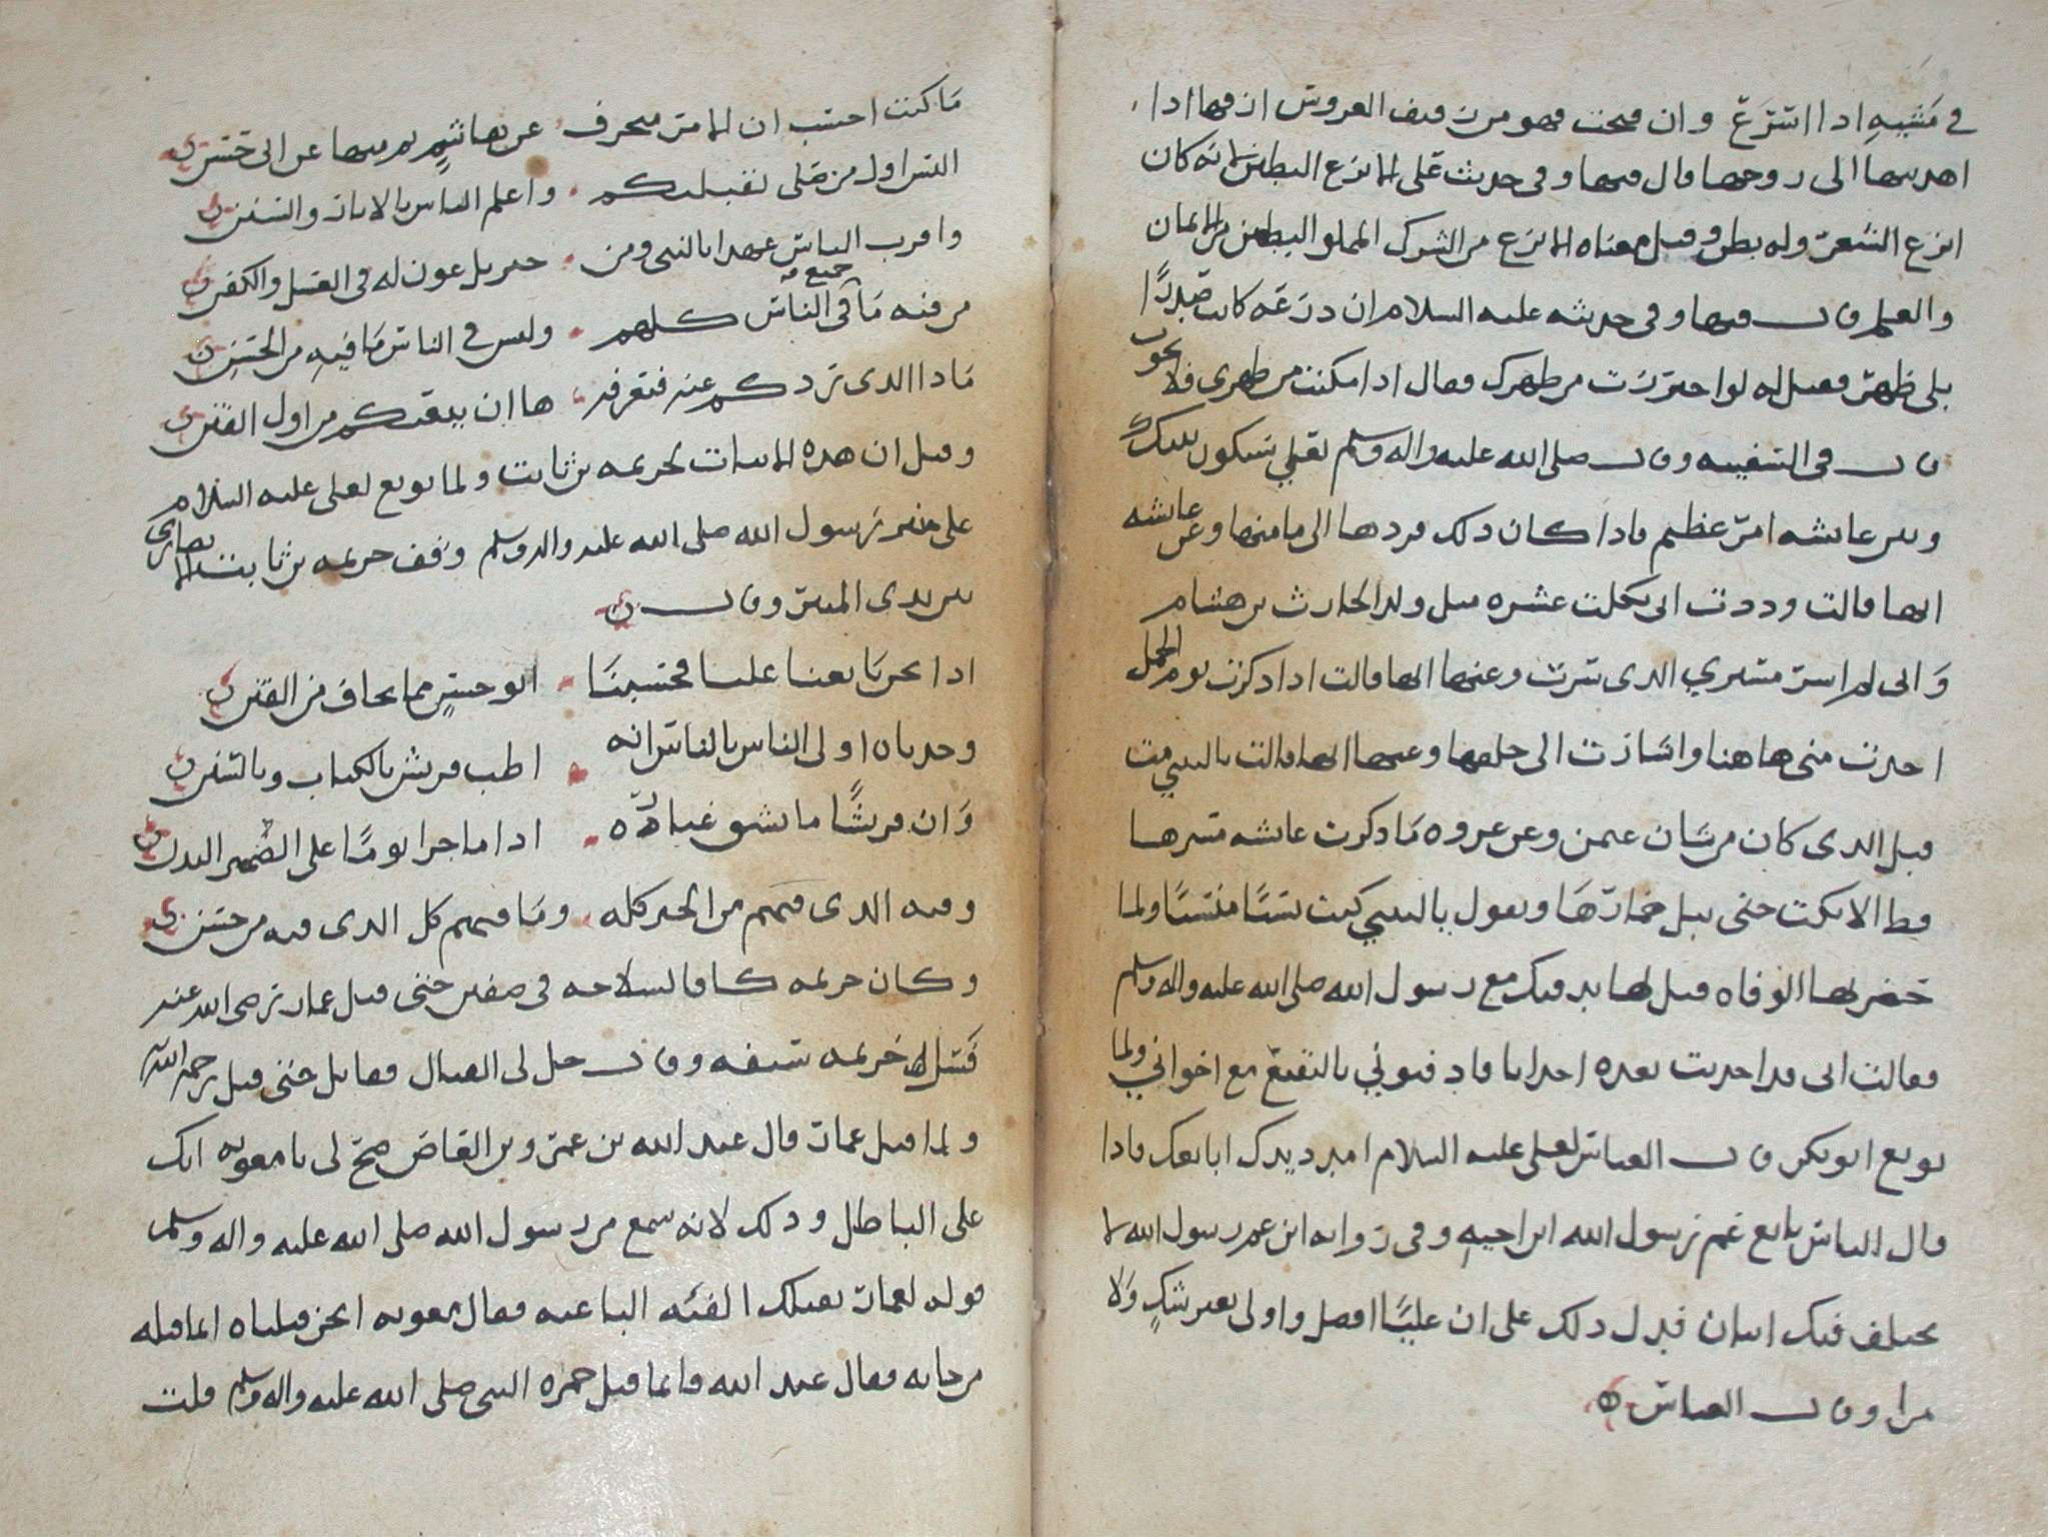 في مشيه اذا اسرع وان فتحت فهو من زفيف العروس ان فيها اذا
اهديتها الى زوجها قال فيها وفي حديث علي الانزع البطين لانه كان
انزع الشعر وله بطن وقيل معناه الانزع من الشرك المملو البطن من الايمان
والعلم قال فيها وفي حديثه عليه السلام ان درعه كانت صدرًا
بلى ظهر فقيل له لو احترزت من ظهرك فقال اذا امكنت من ظهري فلا نجوت
قال في السفينه وقال صلى الله عليه واله وسلم لعلي سيكون بينك
وبين عايشه امر عظيم فاذا كان ذلك فردها الى مامنها وعن عايشه
انها قالت وددت اني ثكلت عشره مثل ولد الحارث بن هشام
واني لم اسر مسيري الذي سرت وعنها انها قالت اذا ذكرت يوم الجمل
اخذت مني هاهنا واشارت الى حلقها وعنها انها قالت ياليتني مت
قبل الذي كان من شان عثمن وعن عروه ما ذكرت عايشه مسيرها
قط الا بكت حتى تبل خمارها وتقول ياليتني كنت نسيًا منسيًا ولما
حضرتها الوفاه قيل لها ندفنك مع رسول الله صلى الله عليه واله وسلم
فقالت اني قد احدثت بعده احداثا فادفنوني بالبقيع مع اخواتي ولما
بويع ابو بكر قال العباس لعلي عليه السلام امدد يدك ابايعك فاذا
قال الناس بايع عم رسول الله ابن اخيه وفي روايه ابن عم رسول الله لا
يختلف فيك اثنان فدل ذلك على ان عليًا افضل واولى بغير شك ولا
مرا وقال العباس
ما كنت احسب ان الامر منحرف عن هاشم ثم منها عن ابي حسن
اليس اول من صلى لقبلتكم واعلم الناس بالايات والسنن
واقرب الناس عهدا بالنبي ومن جبريل عون له في الغسل والكفن
من فيه ما في جميع الناس كلهم وليس في الناس ما فيه من الحسن
ماذا الذي ردكم عنه فنعرفه ها ان بيعتكم من اول الفتن
وقيل ان هذه الابيات لخزيمه بن ثابت ولما بويع لعلي عليه السلام
على منبر رسول الله صلى الله عليه واله وسلم وقف خزيمه بن ثابت الانصاري
بين يدي المنبر وقال
اذا نحن بايعنا عليا فحسبنا ابو حسن مما نخاف من الفتن
وجدناه اولى الناس بالناس انه اطب قريش بالكتاب وبالسنن
وان قريشًا ما تشق غباره اذا ما جرا يومًا على الضمر البدن
وفيه الذي فيهم من الخير كله وما فيهم كل الذي فيه من حسن
وكان خزيمه كافا لسلاحه في صفين حتى قتل عمار رضي الله عنه
فسل خزيمه سيفه وقال حل لي القتال فقاتل حتى قتل رحمه الله
ولما قتل عمار قال عبد الله بن عمرو بن العاص صح لي يا معويه انك
على الباطل وذلك لانه سمع من رسول الله صلى الله عليه واله وسلم
قوله لعمار تقتلك الفئه الباغيه فقال معويه انحن قتلناه انما قتله
من جابه فقال عبد الله فانما قتل حمزه النبي صلى الله عليه واله وسلم قلت